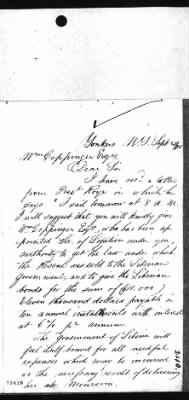 Yonkers N.Y. Sept
Wm Coppinger Esqre
Dear Sir
I have recd a letter
from Prest Roye in which he
says "I sail tomorrow at 8 A.M.
I will suggest that you will kindly give
Wm Coppinger Esqr, who has been ap
pointed Sec. of Legation under you
authority to get the law under which
the Vessel was sold to the Liberian
Government, and to give the Liberian
bonds for the sum of ($11.000)
Eleven thousand dollars payable in
ten annual installments with interest
at 6 % pr annum.
The Government of Liberia will
feel itself bound for all needful
expenses which may be incurred
as the necessary results of delivering
her at Monrovia.